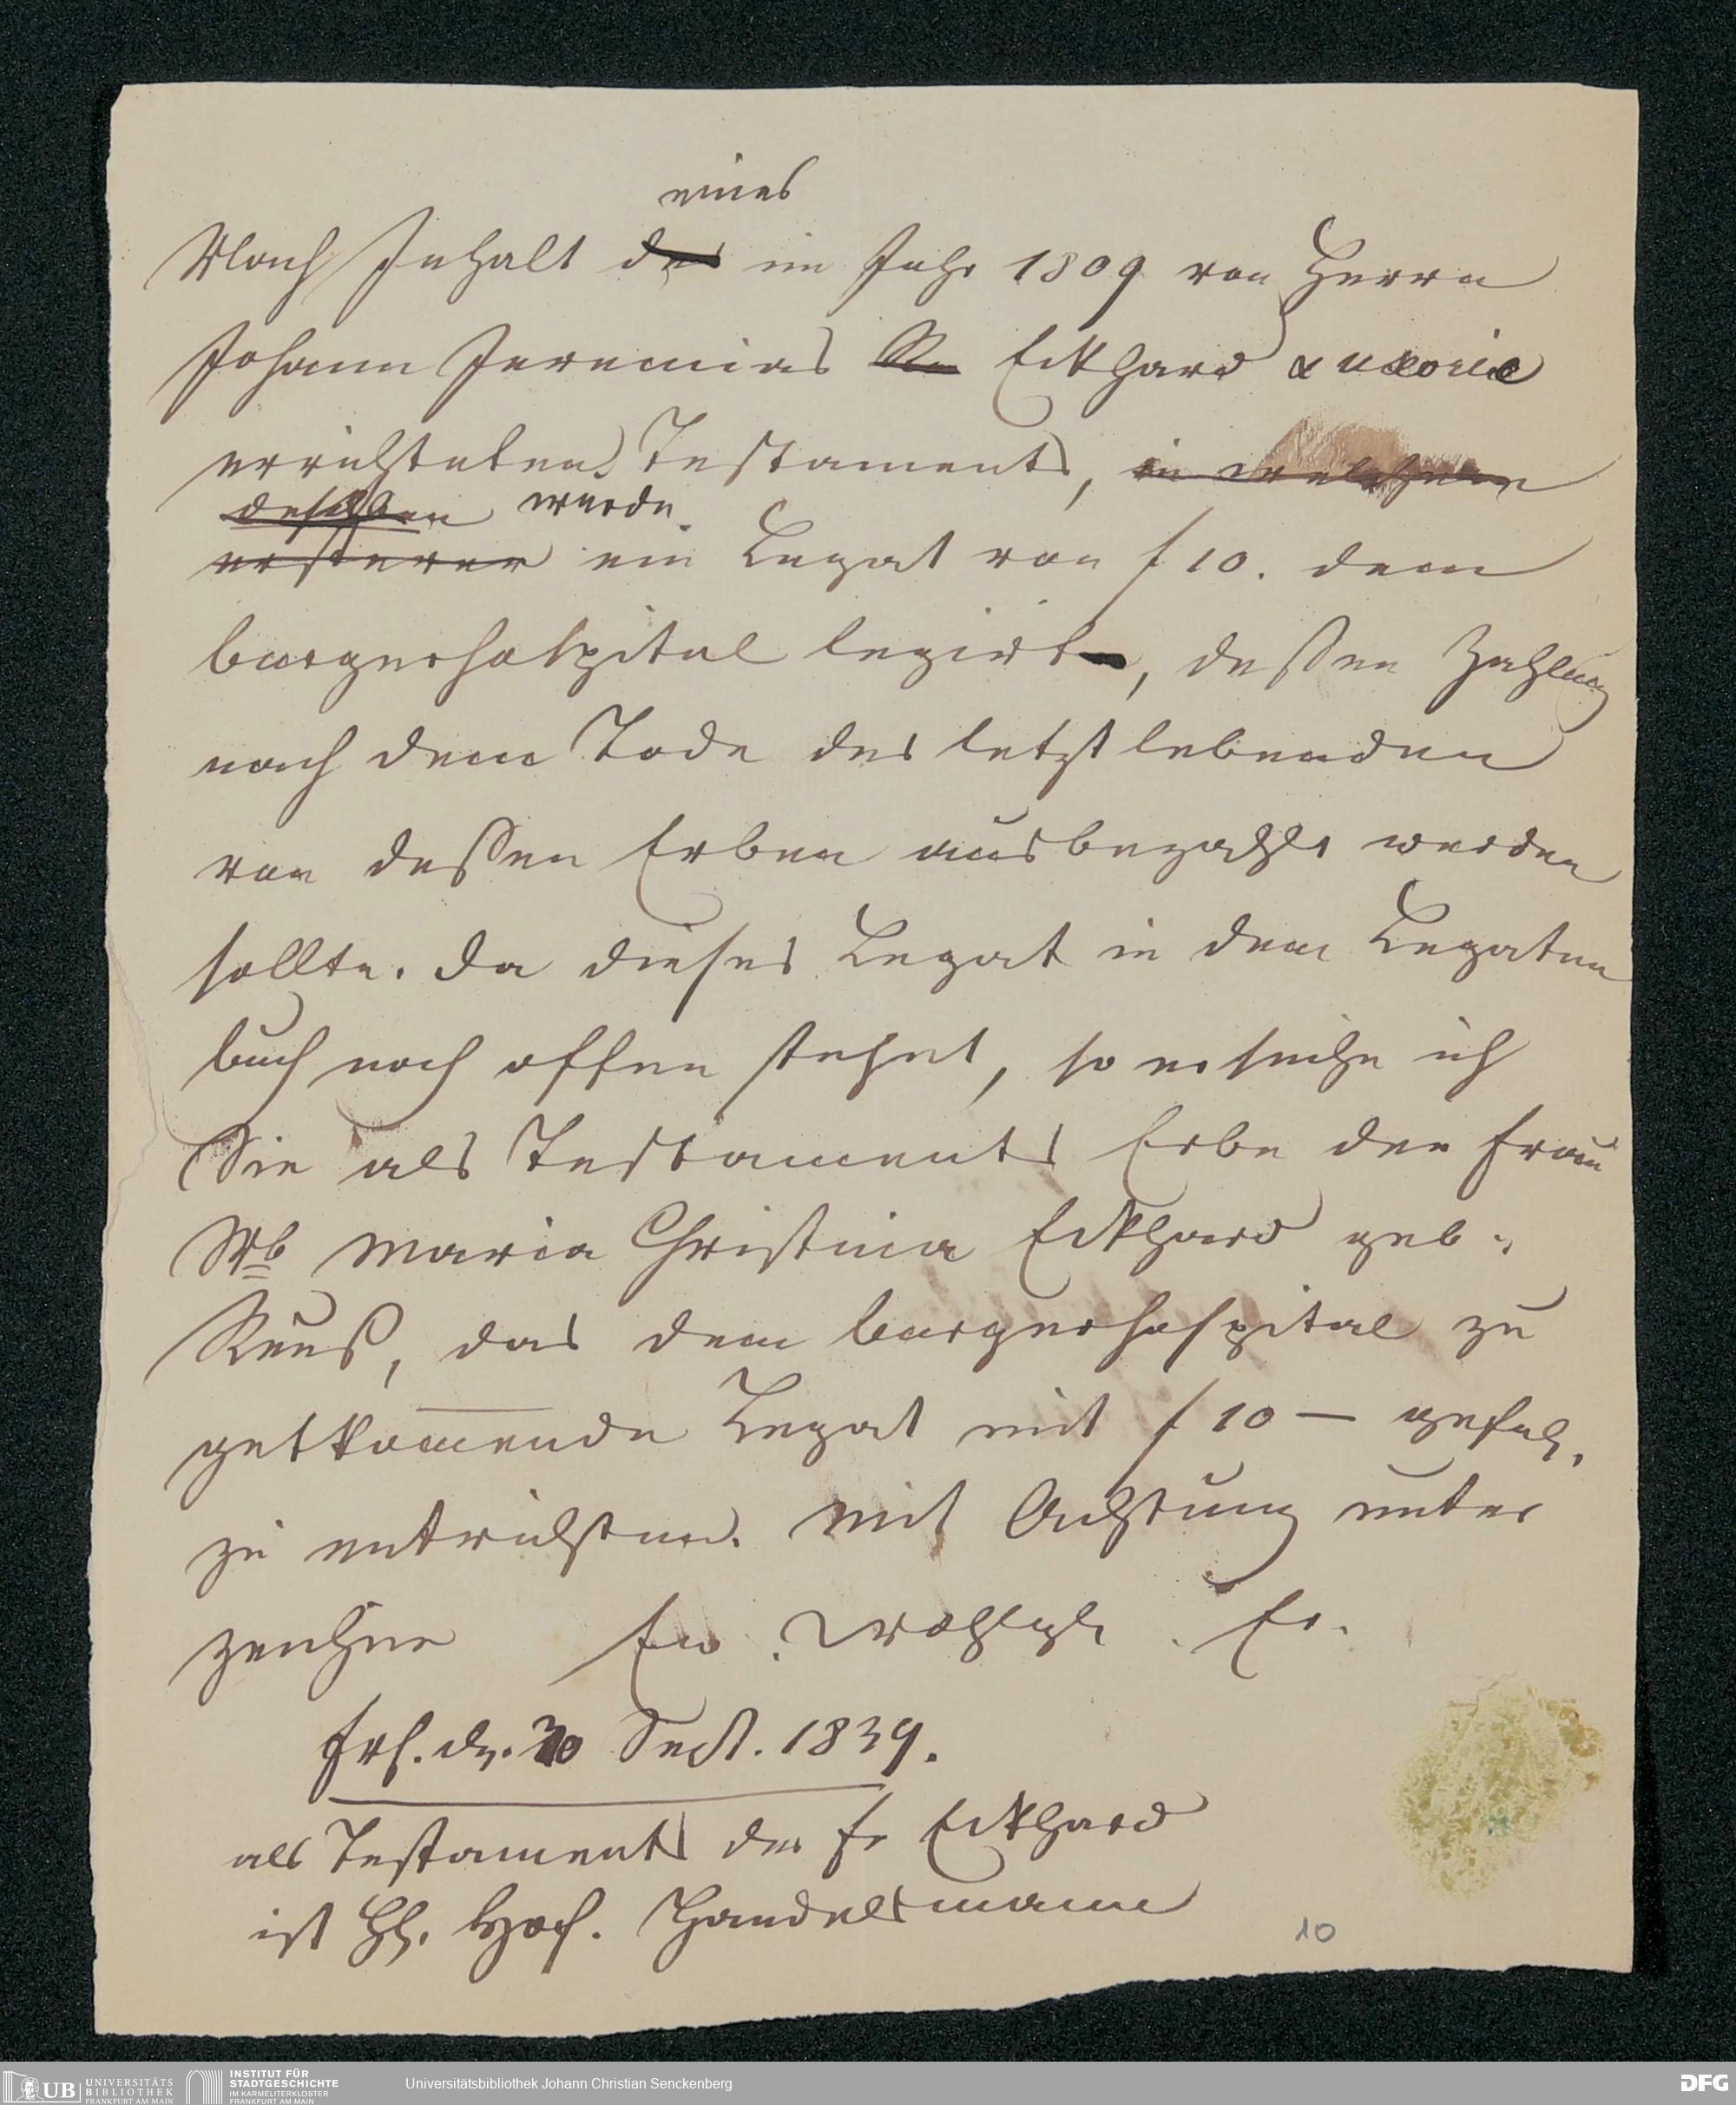 eines
Nach Inhalt des im Jahr 1809 von Herrn
Johann Jeremias Eckhard & uxoris
errichteten Testaments, in welchem
desselben wurde
ersterer ein Legat von f 10. dem
burgerhospital legirt, dessen Zahlung
nach dem Tode des letztlebenden
von dessen Erben ausbezahlt werden
sollte. da dieses Legat in dem Legaten
buch noch offen stehet, so ersuche ich
Sie als Testaments Erbe der Frau
Wb Maria Christina Eckhard geb.
Reuß, das dem burgerhospital zu
gutkomende Legat mit f 10 — gefäl.
zu entrichten. Mit Achtung unter
zeichne Ew. Wohlgb. Er.
Frf. d. 30 Sept. 1839.
als Testaments der Fr Eckhard
ist Hh. Handelsmann
10
UB UNIVERSITÄTS
BIBLIOTHEK
FRANKFURT AM MAIN
INSTITUT FÜR
STADTGESCHICHTE
IM KARMELITERKLOSTER
FRANKFURT AM MAIN
Universitätsbibliothek Johann Christian Senckenberg
DFG